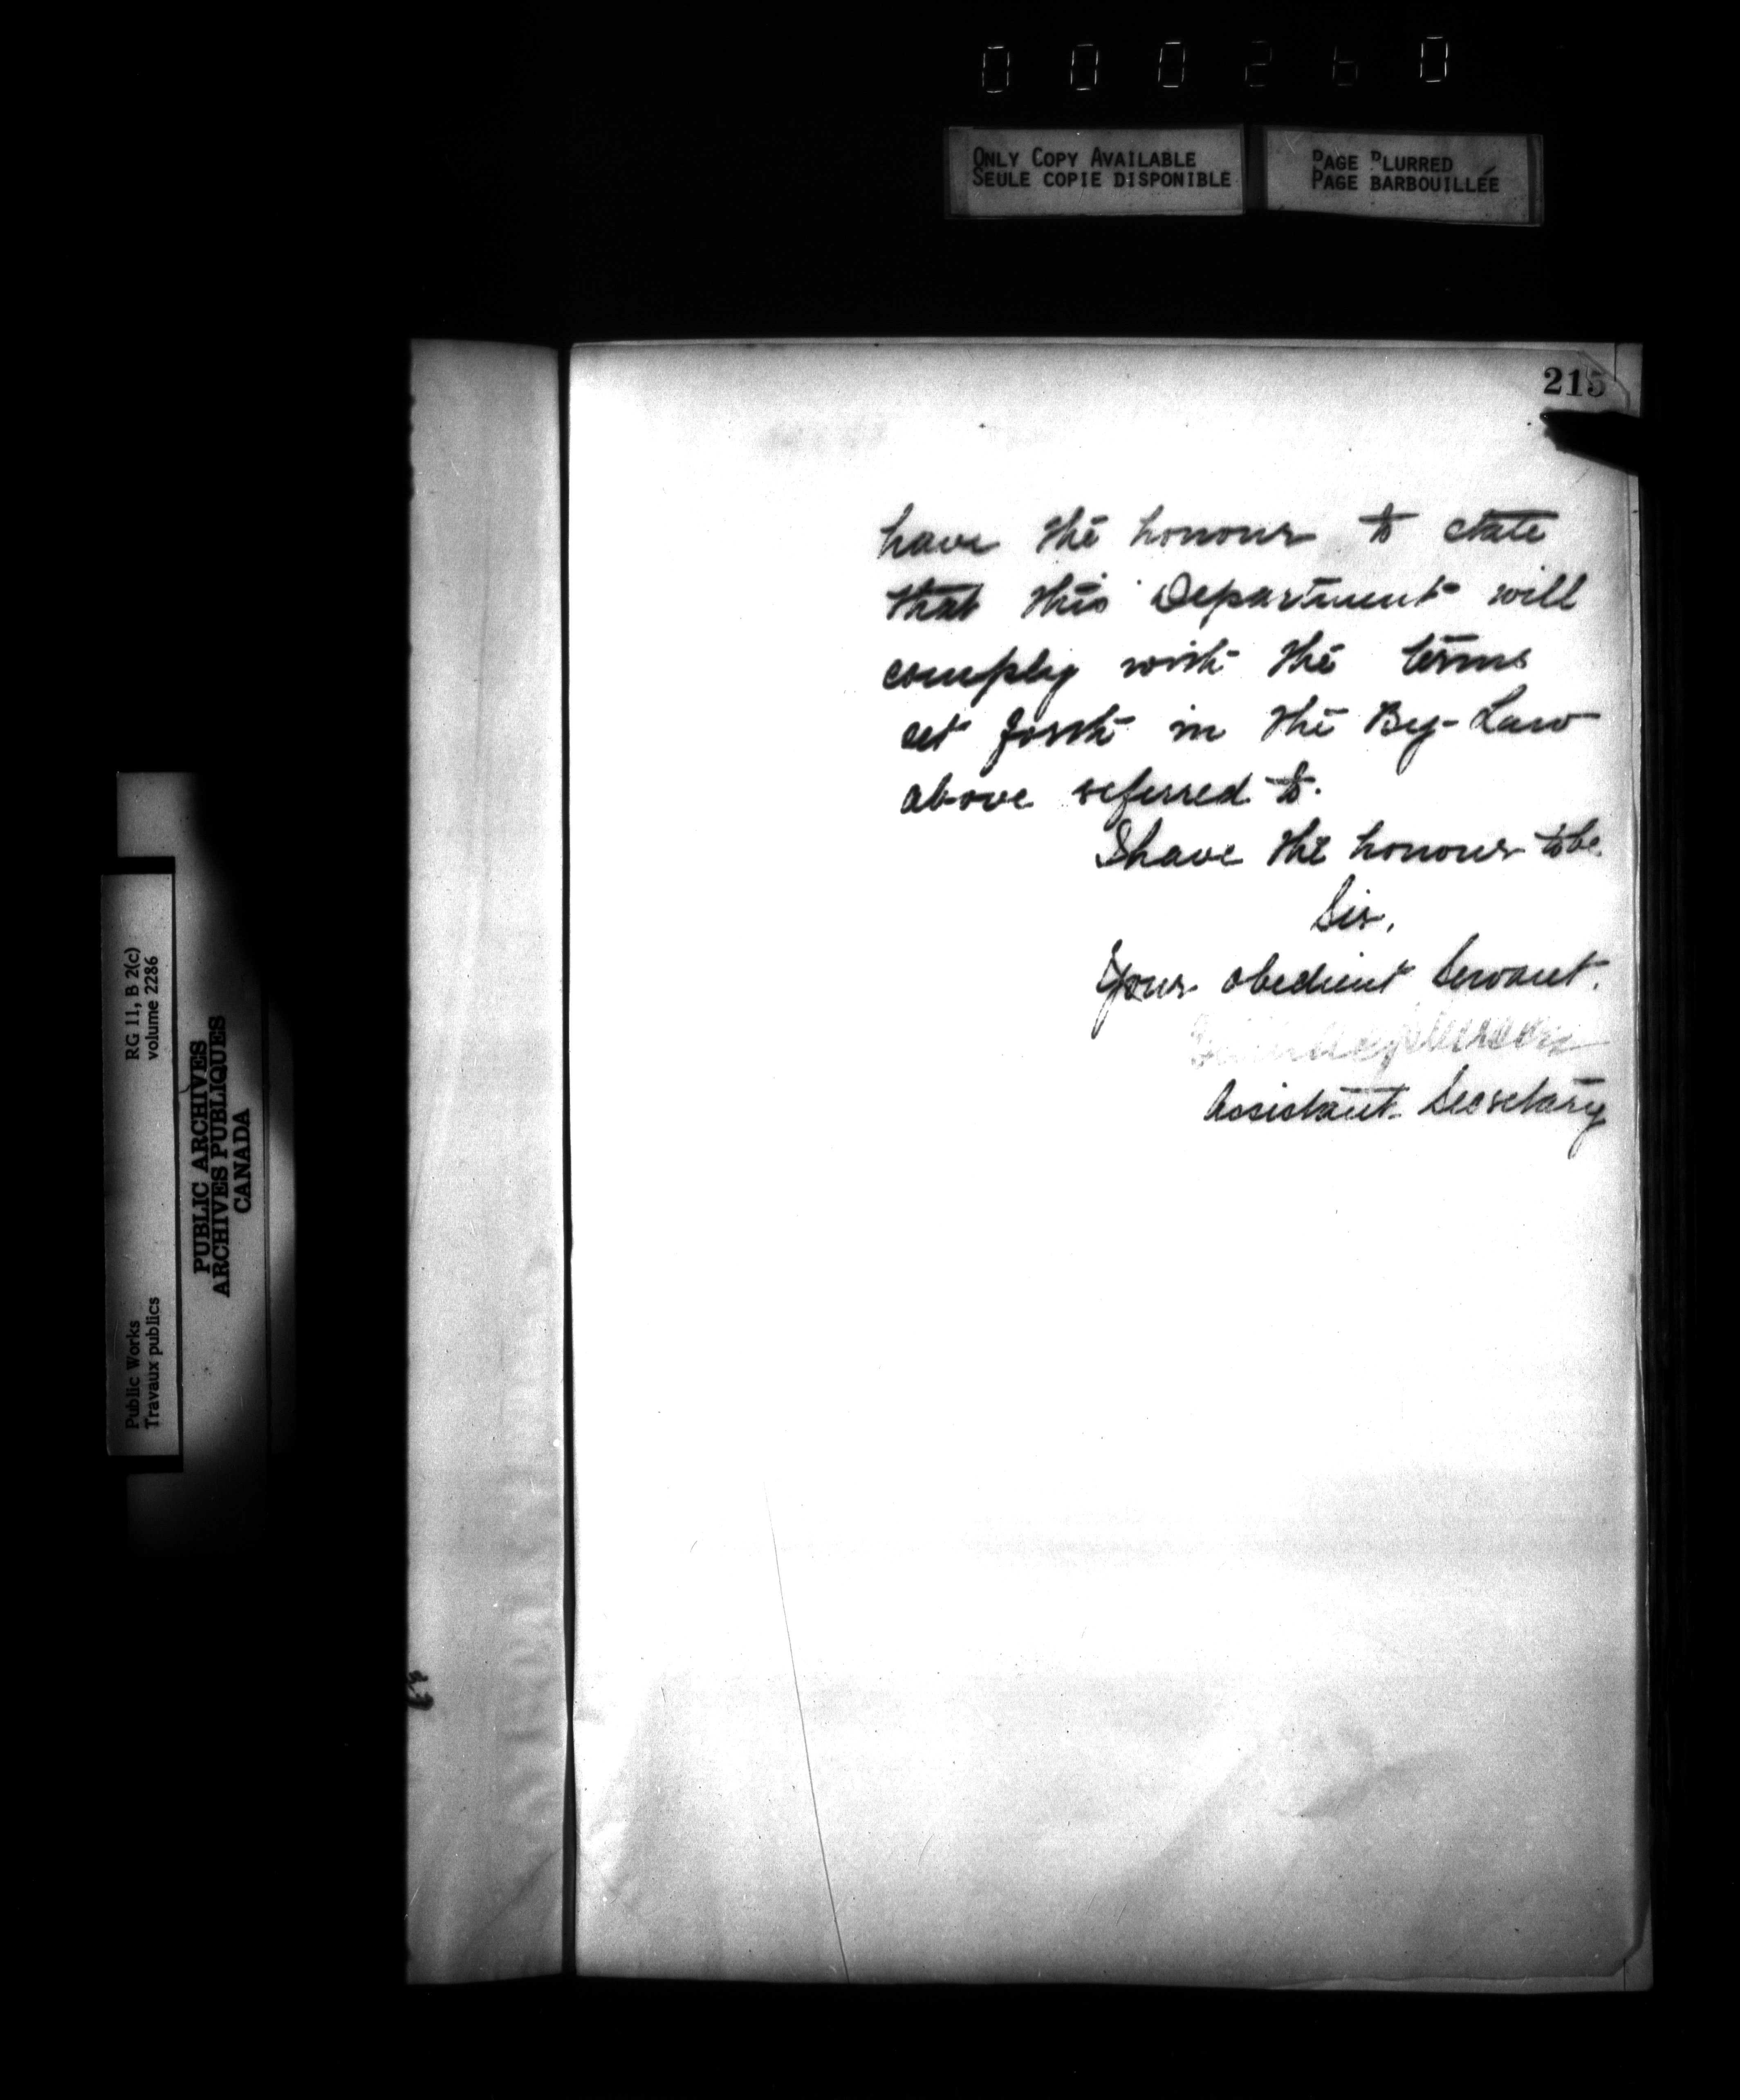 000260
ONLY COPY AVAILABLE
SEULE COPIE DISPONIBLE
PAGE BLURRED
PAGE BARBOUILLÉE
215
have the honour to state
that this Department will
comply with the terms
set forth in the By-Law
above referred to.
I have the honour to be
Sir,
Your obedient Servant.
Assistant Secretary
RG 11, B 2(c)
volume 2286
Public Works
Travaux publics
PUBLIC ARCHIVES
ARCHIVES PUBLIQUES
CANADA